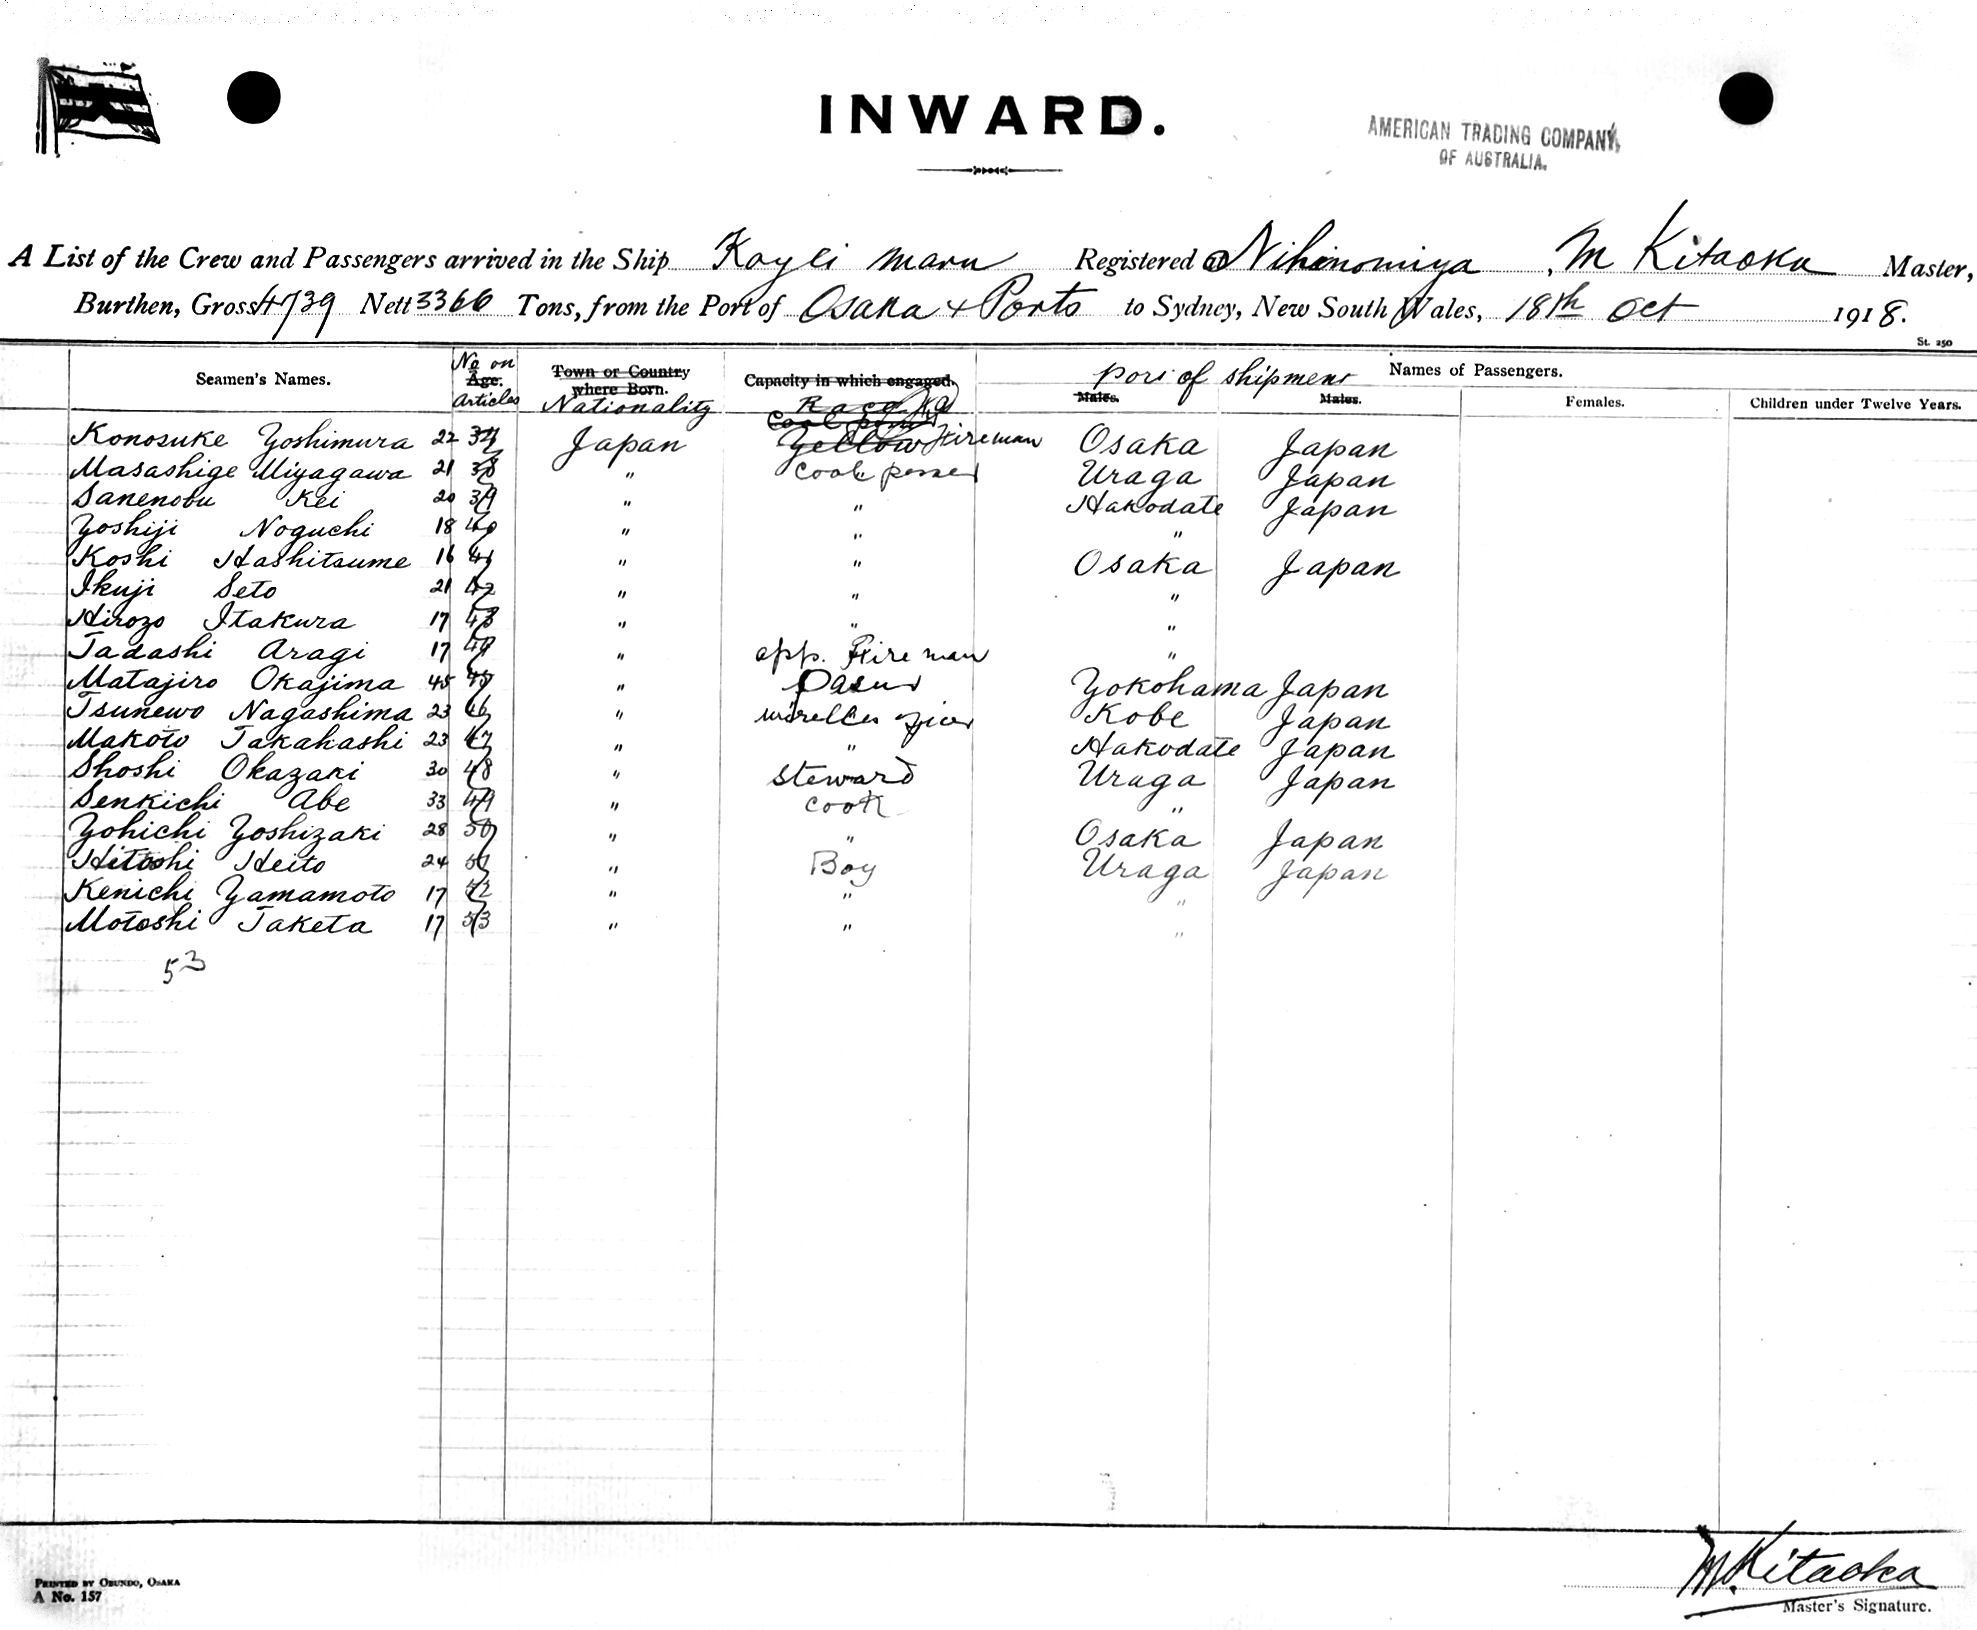 INWARD.
AMERICAN TRADING COMPANY,
OF AUSTRALIA.
A List of the Crew and Passengers arrived in the Ship Kayli Maru Registered Nihinomiya, M Kitaoka Master,
Burthen, Gross 4739 Nett 3366 Tons, from the Port of Osaka & Ports to Sydney, New South Wales, 18th Oct 1918.
St. 250
Seamen's Names. No on Age. Articles Town or Country where Born. Nationality Capacity in which engaged. Race Port of shipment Names of Passengers.
Males. Males. Females. Children under Twelve Years.
Konosuke Yoshimura 22 37 Japan Yellow Fireman Osaka Japan
Masashige Miyagawa 21 38 " Coal passer Uraga Japan
Sanenobu Kei 20 39 " " Hakodate Japan
Yoshiji Noguchi 18 40 " " "
Koshi Hashitsume 16 41 " " Osaka Japan
Ikuji Seto 21 42 " " "
Hirozo Itakura 17 43 " " "
Tadashi Aragi 17 44 " app. Fireman "
Matajiro Okajima 45 45 " Yokohama Japan
Tsunewo Nagashima 23 46 " wireless Kobe Japan
Makoto Takahashi 23 47 " " Hakodate Japan
Shoshi Okazaki 30 48 " steward Uraga Japan
Senkichi Abe 33 49 " cook "
Yohichi Yoshizaki 28 50 " " Osaka Japan
Hitoshi Heito 24 51 " Boy Uraga Japan
Kenichi Yamamoto 17 52 " " "
Motoshi Taketa 17 53 " " "
53
PRINTED BY OBUNDO, OSAKA
A No. 157
M. Kitaoka
Master's Signature.